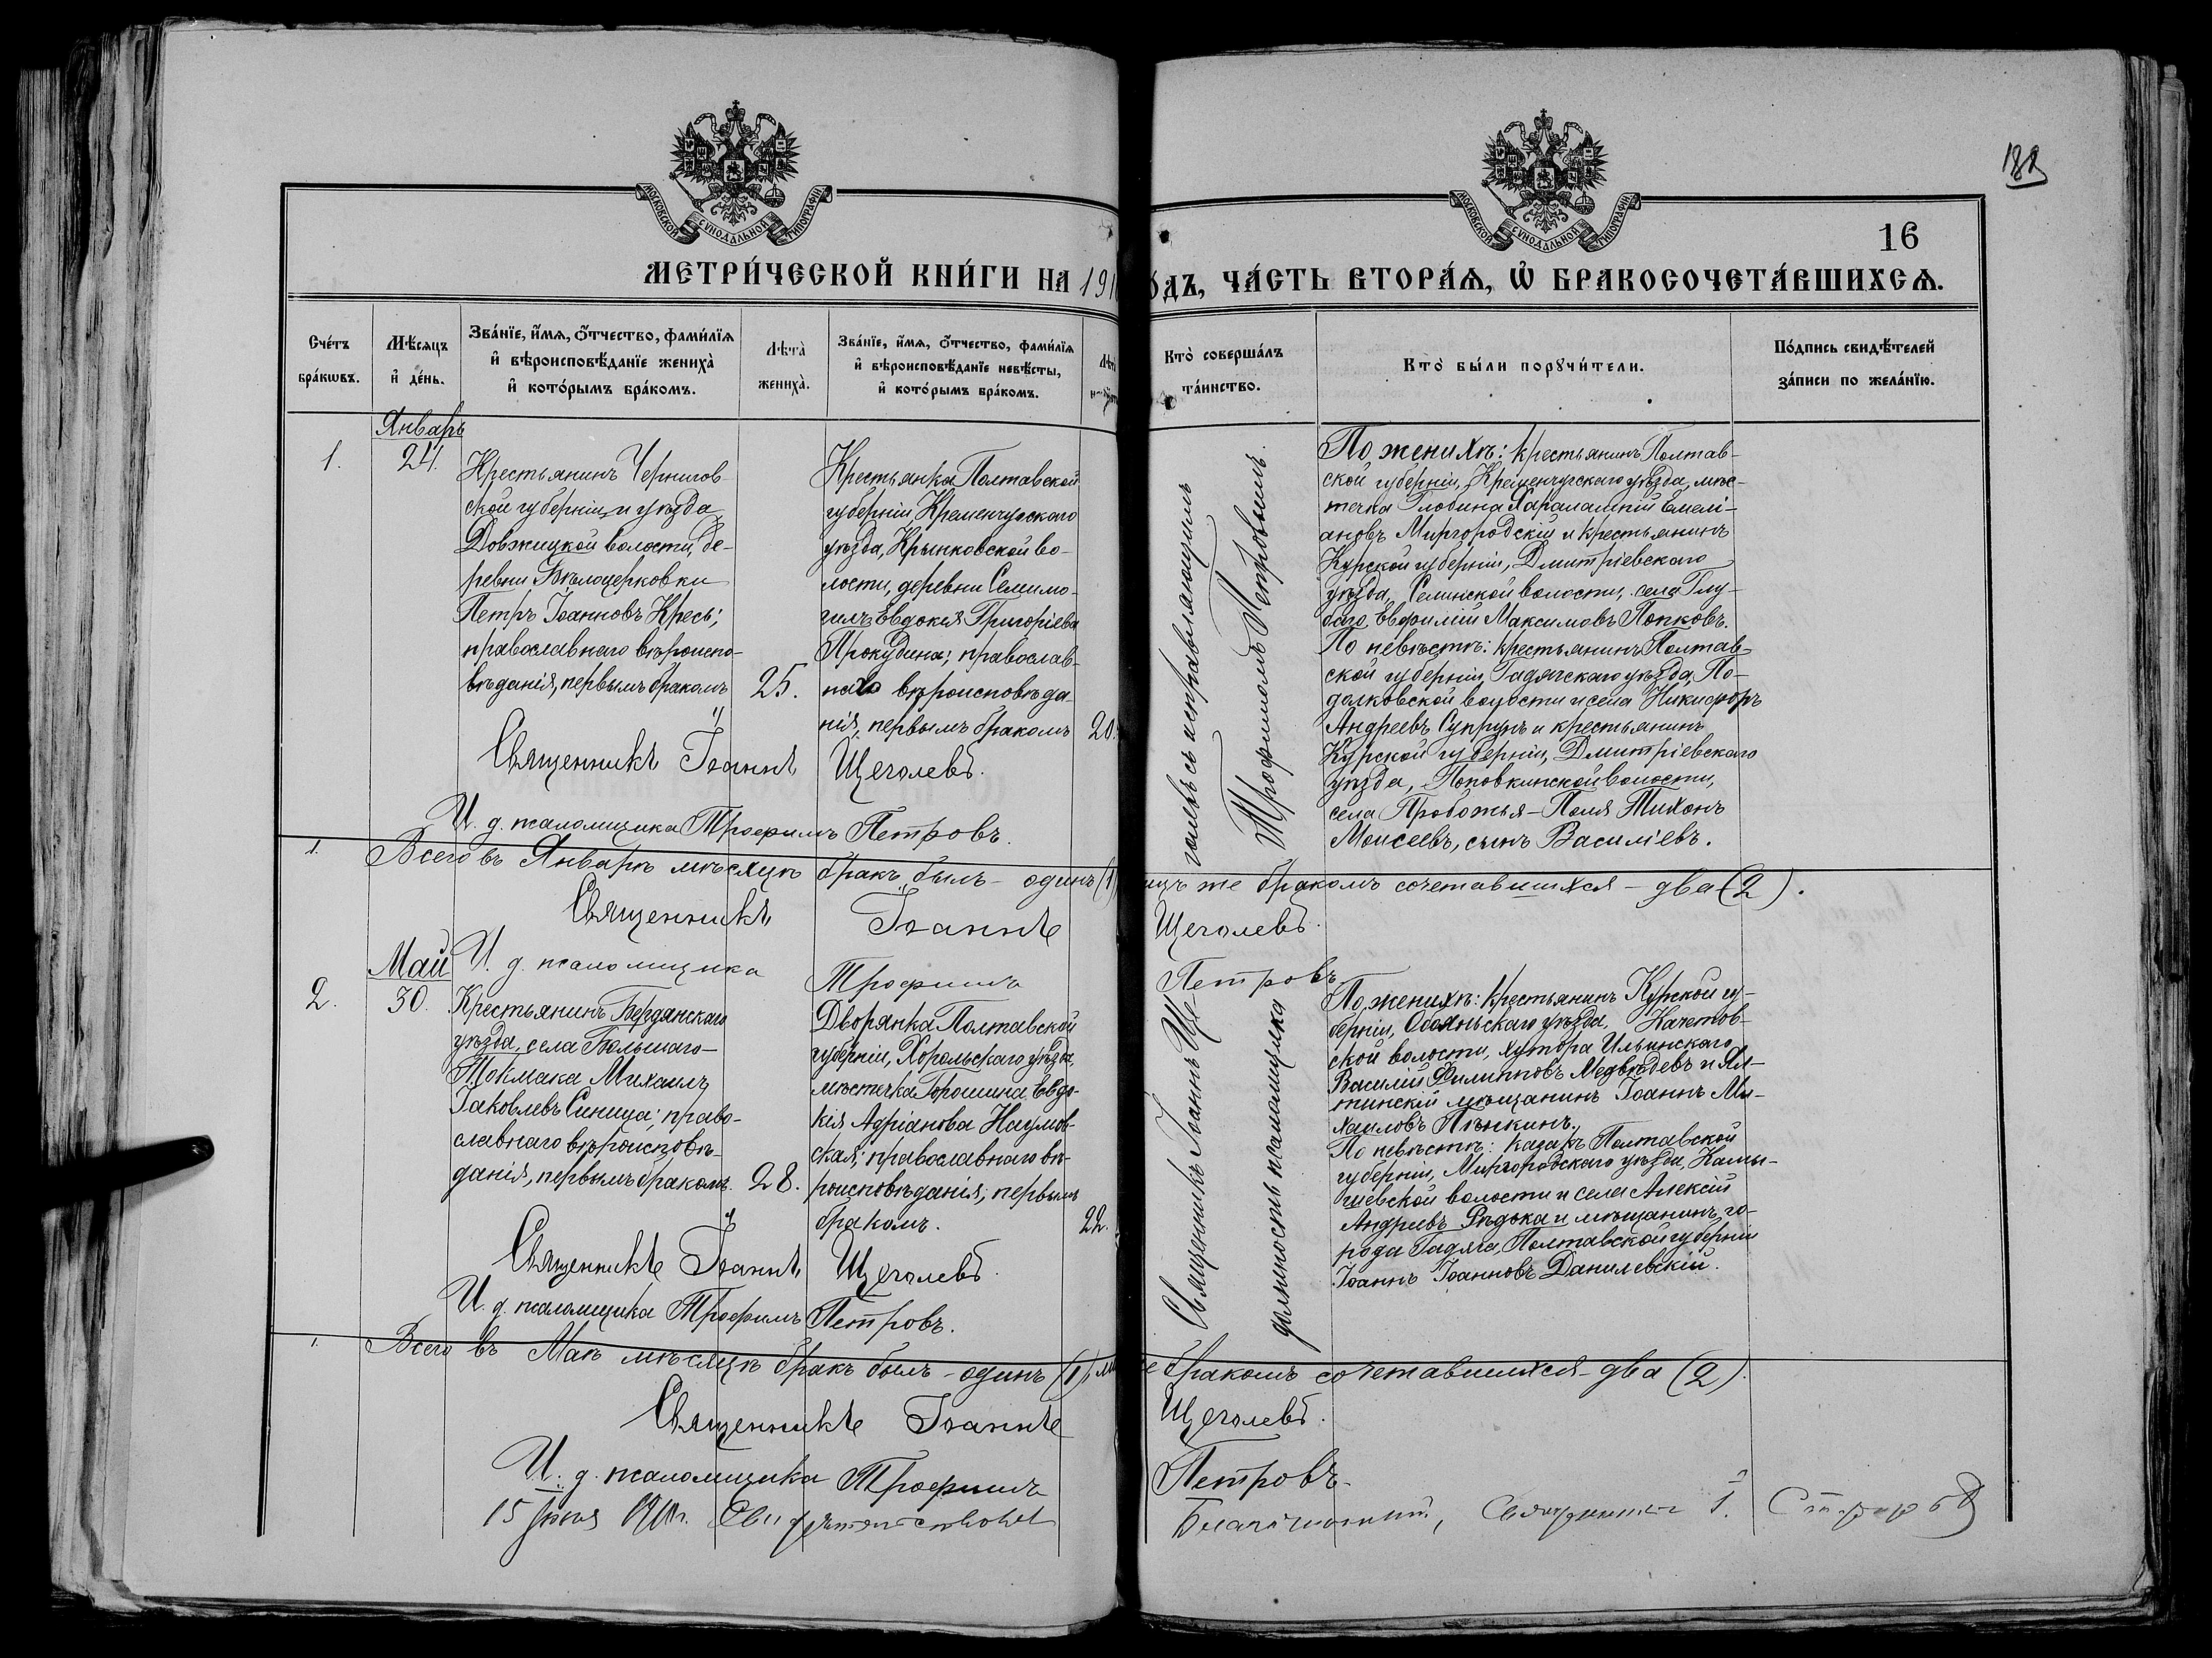 188
16
МОСКОВСКОЙ СѴНОДАЛЬНОЙ ТИПОГРАФІИ
МОСКОВСКОЙ СѴНОДАЛЬНОЙ ТИПОГРАФІИ
МЕТРИ́ЧЕСКОЙ КНИ́ГИ НА 191
о́дъ, ЧА́СТЬ ВТОРА́Ѧ, Ѡ҆ БРАКОСОЧЕТА́ВШИХСѦ.
Сче́тъ
бра́кѡвъ.
Мѣ́сяцъ
и҆ де́нь.
Зва́нїе, и҆́мѧ, ѻ҆́тчество, фами́лїѧ
и҆ вѣроисповѣ́данїе жениха̀
и҆ кото́рымъ бра́комъ.
Лѣта̀
жениха̀.
Зва́нїе, и҆́мѧ, ѻ҆́тчество, фами́лїѧ
и҆ вѣроисповѣ́данїе невѣ́сты,
и҆ кото́рымъ бра́комъ.
Кто̀ соверша́лъ
та́инство.
Кто̀ бы́ли порꙋчи́тели.
По́дпись свидѣ́телей
за́писи по жела́нїю.
Январь
1.
24.
Крестьянинъ Чернигов-
ской губерніи и уѣзда,
Довжицкой волости, де-
ревни Бѣлоцерковки
Петръ Іоанновъ Кресь;
православнаго вѣроиспо-
вѣданія, первымъ бракомъ
25.
Крестьянка Полтавской
губерніи Кременчугскаго
уѣзда, Крынковской во-
лости, деревни Семимо-
гилъ Евдокія Григоріева
Прокудина; православ-
наго вѣроисповѣда-
нія, первымъ бракомъ
20.
голевъ съ исправляющимъ
Трофимомъ Петровымъ.
По женихѣ: крестьянинъ Полтав-
ской губерніи, Кременчугскаго уѣзда, мѣс-
течка Глобина Харалампій Емелі-
ановъ Миргородскій и крестьянинъ
Курской губерніи, Дмитріевскаго
уѣзда, Селинской волости, села Глу-
баго Евфимій Максимовъ Попковъ.
По невѣстѣ: крестьянинъ Полтав-
ской губерніи Гадячскаго уѣзда, По-
долковской волости и села Никифоръ
Андреевъ Супрунъ и крестьянинъ
Курской губерніи, Дмитріевскаго
уѣзда, Поповкинской волости,
села Пробожья-Поля Тихонъ
Моисеевъ, сынъ Василіевъ.
Священникъ Іоаннъ Щеголевъ.
И. д. псаломщика Трофимъ Петровъ.
1.
Всего въ Январѣ мѣсяцѣ бракъ былъ - одинъ (1)
ицъ же бракомъ сочетавшихся - два (2).
Священникъ Іоаннъ Щеголевъ.
И. д. псаломщика Трофимъ Петровъ
Май
2.
30.
Крестьянинъ Бердянскаго
уѣзда, села Большаго-
Токмака Михаилъ
Іаковлевъ Синица; право-
славнаго вѣроисповѣ-
данія, первымъ бракомъ.
28.
Дворянка Полтавской
губерніи, Хорольскаго уѣзда,
мѣстечка Горошина Евдо-
кія Адріанова Наумов-
ская; православнаго вѣ-
роисповѣданія; первымъ
бракомъ.
22.
Священникъ Іоаннъ Ще-
должность псаломщика
По женихѣ: крестьянинъ Курской гу-
берніи, Обояньскаго уѣзда, Качетов-
ской волости, хутора Ильинскаго
Василій Филипповъ Медвѣдевъ и Ял-
тинскій мѣщанинъ Іоаннъ Ми-
хаиловъ Пѣнкинъ.
По невѣстѣ: казакъ Полтавской
губерніи, Миргородскаго уѣзда, Камы-
шевской волости и села Алексій
Андреевъ Рѣдька и мѣщанинъ го-
рода Гадяча, Полтавской губерніи
Іоаннъ Іоанновъ Данилевскій.
Священникъ Іоаннъ Щеголевъ.
И. д. псаломщика Трофимъ Петровъ.
1.
Всего въ Маѣ мѣсяцѣ бракъ былъ - одинъ (1), ли
е бракомъ сочетавшихся - два (2).
Священникъ Іоаннъ Щеголевъ.
И. д. псаломщика Трофимъ Петровъ.
15 Свидѣтельствовалъ Благочинный, Священникъ І.